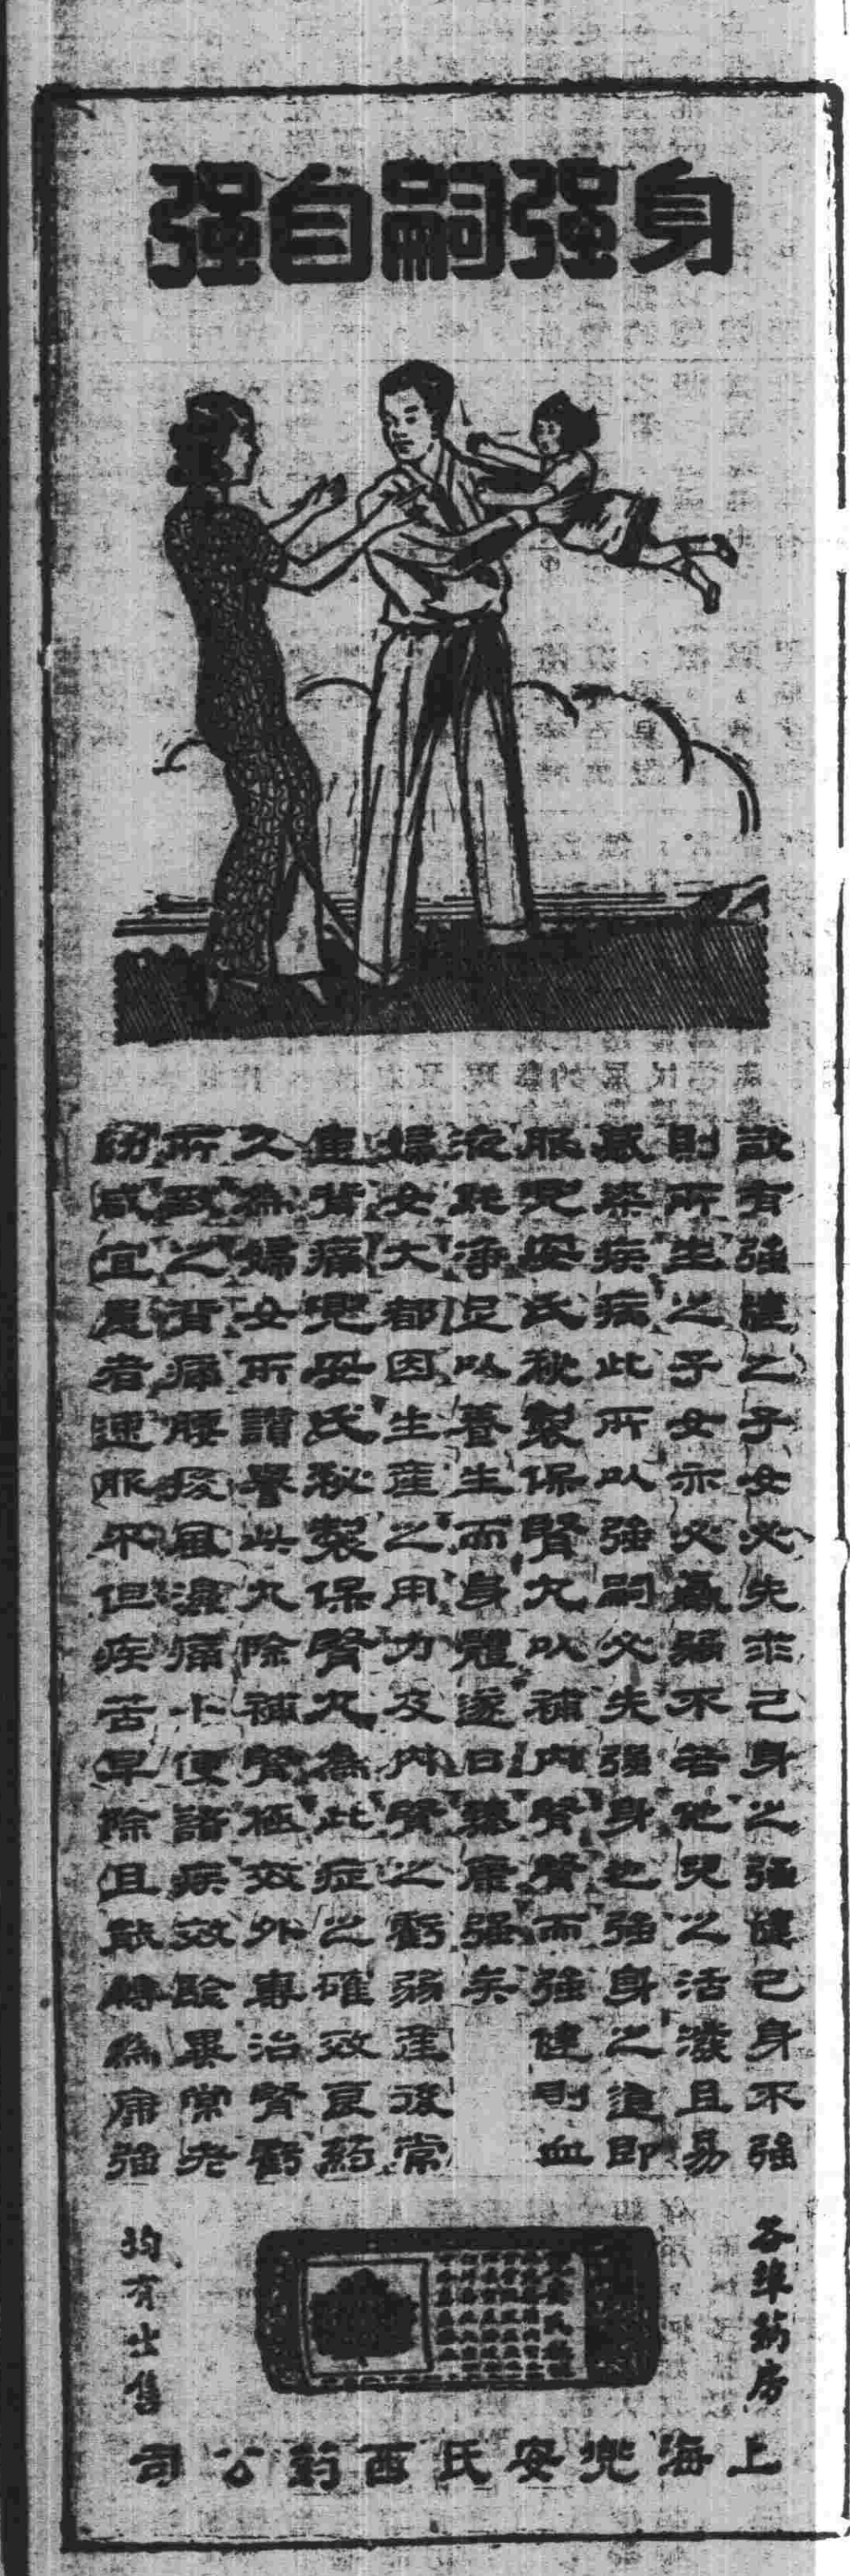 身强嗣自强
欲有强健之子女必先求己身之强健己身不强
則所生之子女亦必羸弱不若他兒之活潑且易
感染疾病此所以強嗣必先强身也強身之道即
服兜安氏秘製保腎丸以補內腎腎而強健則血
液能净足以養生而身體遂日臻康强矣
婦女大都因生產之用力及內腎之虧弱產後常
患背痛兜安氏秘製保腎丸為此症之確效良葯
久為婦女所讃譽此丸除補腎極效外專治腎虧
所致之背痛腰痠風濕痛小便諸疾效驗異常老
幼咸宜患者速服不但疾苦早除且能轉為康強
各埠葯房
均有出售
上海兜安氏西葯公司